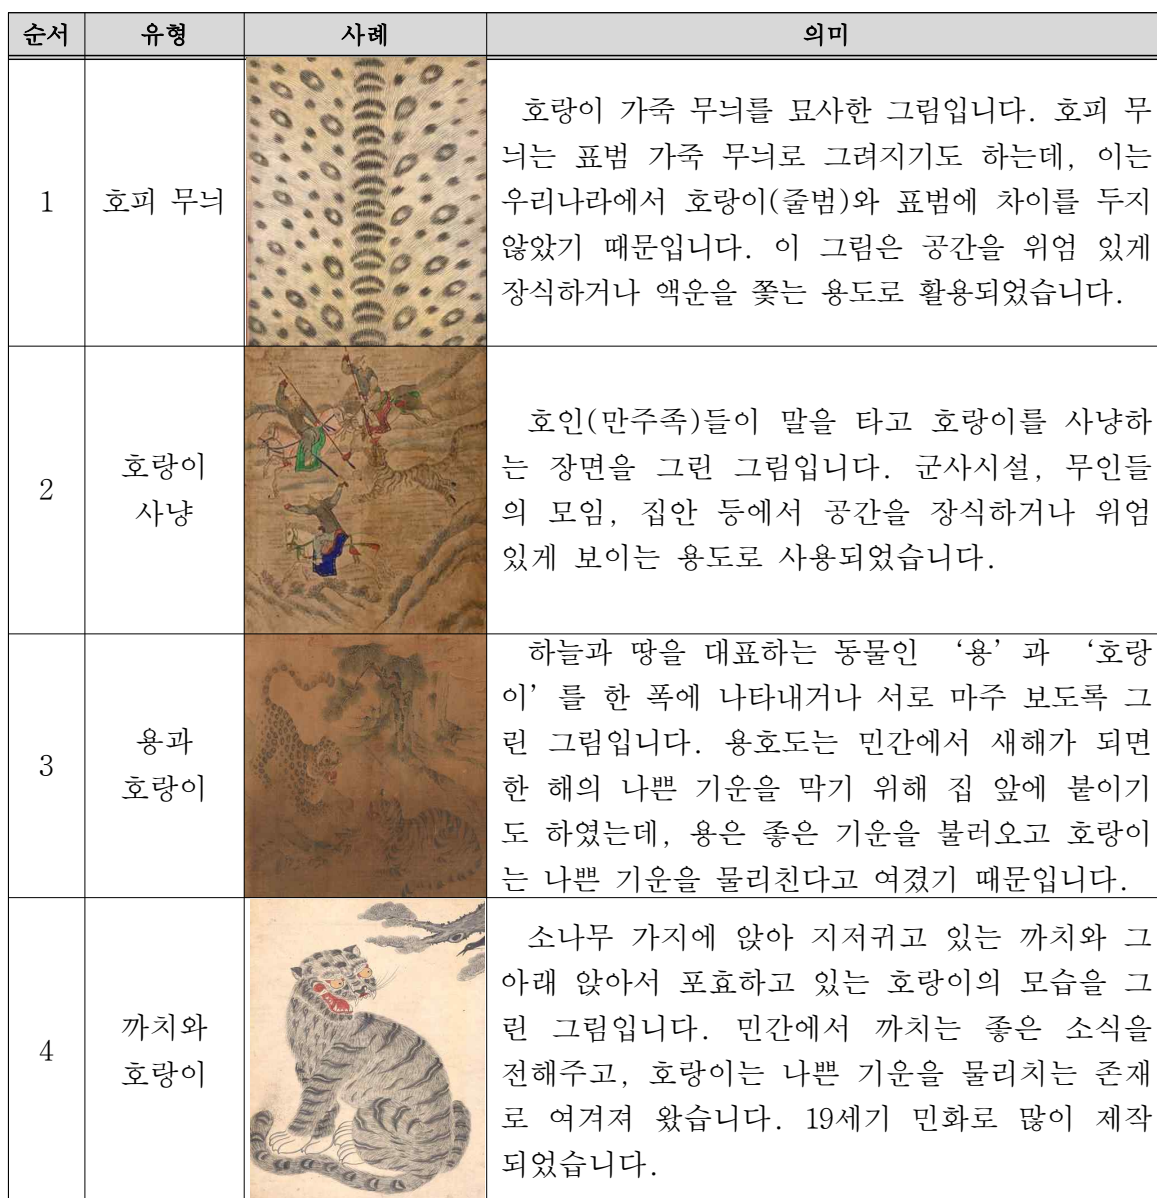 순서 유형 사례 의미
1
호피 무늬
호랑이 가죽 무늬를 묘사한 그림입니다. 호피 무
늬는 표범 가죽 무늬로 그려지기도 하는데, 이는
우리나라에서 호랑이(줄범)와 표범에 차이를 두지
않았기 때문입니다. 이 그림은 공간을 위엄 있게
장식하거나 액운을 쫓는 용도로 활용되었습니다.
2
호랑이
사냥
호인(만주족)들이 말을 타고 호랑이를 사냥하
는 장면을 그린 그림입니다. 군사시설, 무인들
의 모임, 집안 등에서 공간을 장식하거나 위엄
있게 보이는 용도로 사용되었습니다.
3
용과
호랑이
하늘과 땅을 대표하는 동물인 ‘용’과 ‘호랑
이’를 한 폭에 나타내거나 서로 마주 보도록 그
린 그림입니다. 용호도는 민간에서 새해가 되면
한 해의 나쁜 기운을 막기 위해 집 앞에 붙이기
도 하였는데, 용은 좋은 기운을 불러오고 호랑이
는 나쁜 기운을 물리친다고 여겼기 때문입니다.
4
까치와
호랑이
소나무 가지에 앉아 지저귀고 있는 까치와 그
아래 앉아서 포효하고 있는 호랑이의 모습을 그
린 그림입니다. 민간에서 까치는 좋은 소식을
전해주고, 호랑이는 나쁜 기운을 물리치는 존재
로 여겨져 왔습니다. 19세기 민화로 많이 제작
되었습니다.